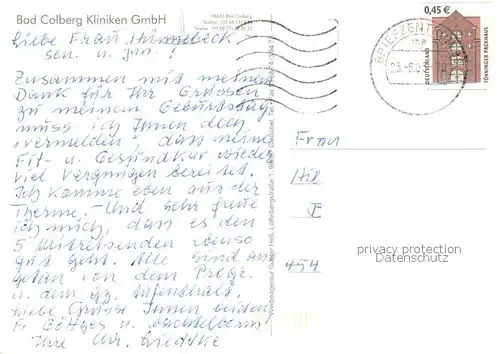 Bad Colberg Kliniken GmbH
98663 Bad Colberg
0,45 €
DEUTSCHLAND
TÖNNINGER PACKHAUS
BRIEFZENT
Liebe Frau
sen. u. jun.!
Zusammen mit meinem
Dank für Ihr Grüssen
zu meinem Geburtstag
muss ich Ihnen doch
vermelden, dass meine
Fit- u. Gesundkur wieder
viel Vergnügen bereitet.
Ich komme eben aus der
Therme. - Und sehr freue
ich mich, dass es den
5 Mitreisenden ebenso
gut geht. Alle sind an-
getan von dem Progr.
u. dem gz. Aufenthalt.
Liebe Grüsse Ihnen beiden
Fr. Göttges u.
Ihre Chr.
Frau
Hil
454
privacy protection
Datenschutz